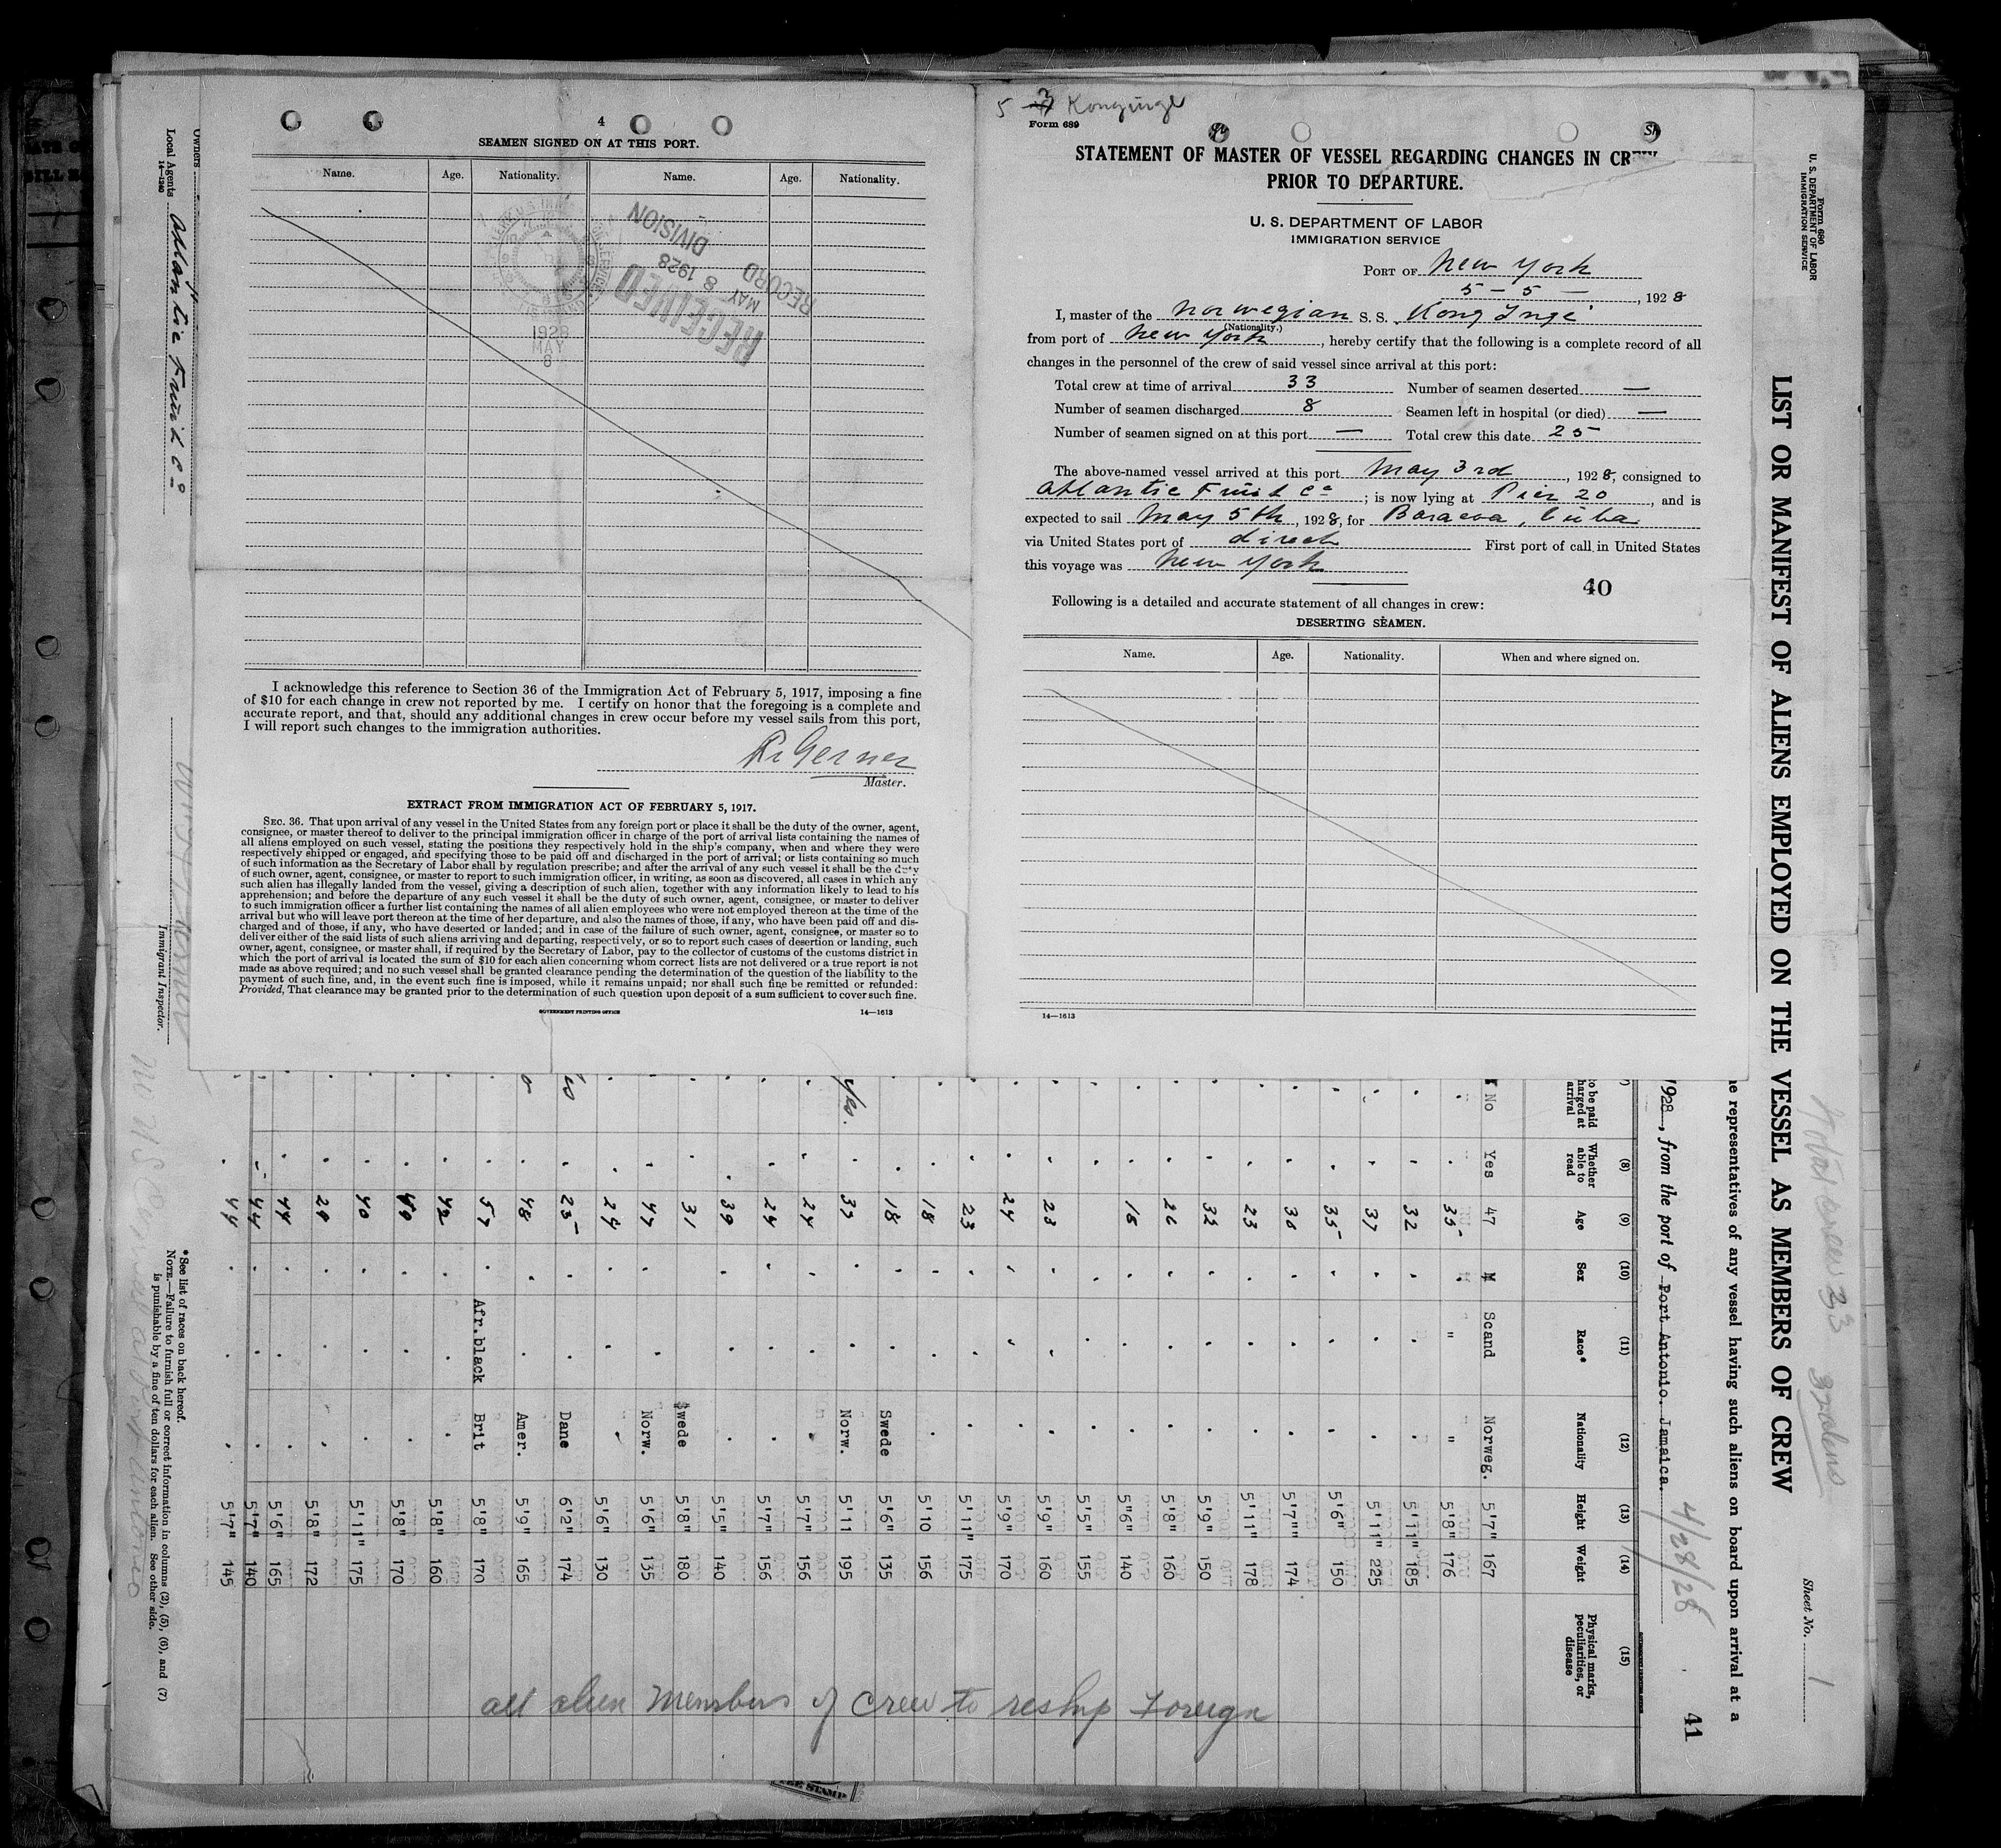 4
SEAMEN SIGNED ON AT THIS PORT.
Name. Age. Nationality. Name. Age. Nationality.
RECEIVED
MAY 8 1928
RECORD DIVISION
1928
MAY
8
I acknowledge this reference to Section 36 of the Immigration Act of February 5, 1917, imposing a fine
of $10 for each change in crew not reported by me. I certify on honor that the foregoing is a complete and
accurate report, and that, should any additional changes in crew occur before my vessel sails from this port,
I will report such changes to the immigration authorities.
Gerner
Master.
EXTRACT FROM IMMIGRATION ACT OF FEBRUARY 5, 1917.
SEC. 36. That upon arrival of any vessel in the United States from any foreign port or place it shall be the duty of the owner, agent,
consignee, or master thereof to deliver to the principal immigration officer in charge of the port of arrival lists containing the names of
all aliens employed on such vessel, stating the positions they respectively hold in the ship's company, when and where they were
respectively shipped or engaged, and specifying those to be paid off and discharged in the port of arrival; or lists containing so much
of such information as the Secretary of Labor shall by regulation prescribe; and after the arrival of any such vessel it shall be the duty
of such owner, agent, consignee, or master to report to such immigration officer, in writing, as soon as discovered, all cases in which any
such alien has illegally landed from the vessel, giving a description of such alien, together with any information likely to lead to his
apprehension; and before the departure of any such vessel it shall be the duty of such owner, agent, consignee, or master to deliver
to such immigration officer a further list containing the names of all alien employees who were not employed thereon at the time of the
arrival but who will leave port thereon at the time of her departure, and also the names of those, if any, who have been paid off and dis-
charged and of those, if any, who have deserted or landed; and in case of the failure of such owner, agent, consignee, or master so to
deliver either of the said lists of such aliens arriving and departing, respectively, or so to report such cases of desertion or landing, such
owner, agent, consignee, or master shall, if required by the Secretary of Labor, pay to the collector of customs of the customs district in
which the port of arrival is located the sum of $10 for each alien concerning whom correct lists are not delivered or a true report is not
made as above required; and no such vessel shall be granted clearance pending the determination of the question of the liability to the
payment of such fine, and, in the event such fine is imposed, while it remains unpaid; nor shall such fine be remitted or refunded:
Provided, That clearance may be granted prior to the determination of such question upon deposit of a sum sufficient to cover such fine.
GOVERNMENT PRINTING OFFICE
14—1613
5 Konginge
Form 689
STATEMENT OF MASTER OF VESSEL REGARDING CHANGES IN CREW
PRIOR TO DEPARTURE.
U. S. DEPARTMENT OF LABOR
IMMIGRATION SERVICE
PORT OF New York
5 – 5 – , 1928
I, master of the Norwegian S. S. Kong Inge
(Nationality.)
from port of New York, hereby certify that the following is a complete record of all
changes in the personnel of the crew of said vessel since arrival at this port:
Total crew at time of arrival 33 Number of seamen deserted —
Number of seamen discharged 8 Seamen left in hospital (or died) —
Number of seamen signed on at this port — Total crew this date 25
The above-named vessel arrived at this port May 3rd, 1928, consigned to
Atlantic Fruit Co; is now lying at Pier 20, and is
expected to sail May 5th, 1928, for Baracoa, Cuba
via United States port of direct First port of call in United States
this voyage was New York
40
Following is a detailed and accurate statement of all changes in crew:
DESERTING SEAMEN.
Name. Age. Nationality. When and where signed on.
14—1613
Form 680
U. S. DEPARTMENT OF LABOR
IMMIGRATION SERVICE
Sheet No. 1
LIST OR MANIFEST OF ALIENS EMPLOYED ON THE VESSEL AS MEMBERS OF CREW
Total crew 33
representatives of any vessel having such aliens on board upon arrival at a
1928, from the port of Port Antonio. Jamaica. 4/28/28
41
(8) (9) (10) (11) (12) (13) (14) (15)
to be paid charged at arrival
Whether able to read
Age
Sex
Race*
Nationality
Height
Weight
Physical marks, peculiarities, or disease
No Yes 47 M Scand Norweg. 5'7" 167
35 " " 5'8" 176
32 5'11" 185
37 5'11" 225
35 5'6" 150
30 5'7" 174
23 5'11" 178
33 5'9" 150
26 5'8" 160
18 5'6" 140
5'5" 155
23 5'9" 160
24 5'9" 170
23 5'11" 175
18 5'10 156
18 Swede 5'6" 135
Yes. 33 Norw. 5'11 195
24 5'7" 156
24 5'7" 156
39 5'5" 140
31 Swede 5'8" 180
47 Norw. 5'6" 135
24 5'6" 130
25 Dane 6'2" 174
48 Amer. 5'9" 165
57 Afr.black Brit 5'8" 170
42 5'8" 160
49 5'8" 170
40 5'11" 175
29 5'8" 172
44 5'6" 165
44 5'7" 140
44 5'7" 145
all alien members of crew to reship foreign
Owners
Local Agents Atlantic Fruit Co
14—1240
Immigrant Inspector.
*See list of races on back hereof.
NOTE.—Failure to furnish full or correct information in columns (2), (5), (6), and (7)
is punishable by a fine of ten dollars for each alien. See other side.